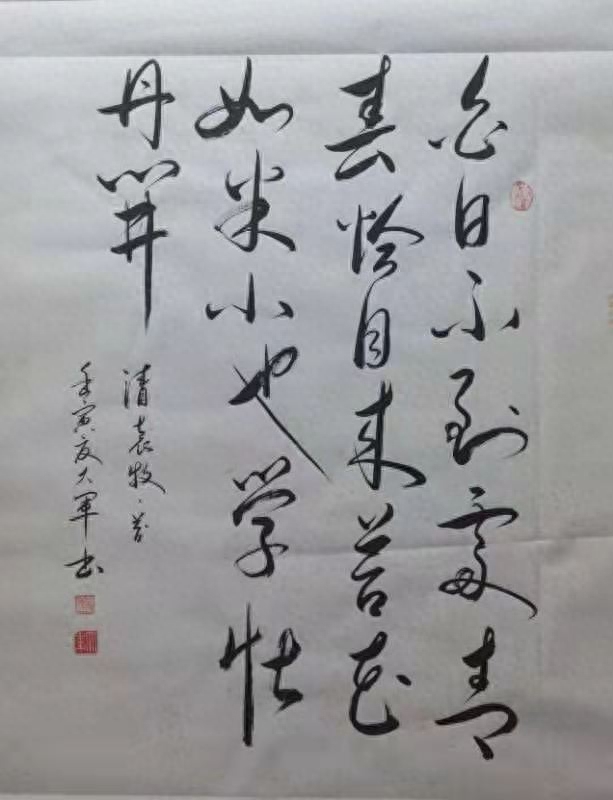 白日不到處青
春恰自来苔花
如米小也學牡
丹開
清袁牧·苔
壬寅夏大軍书